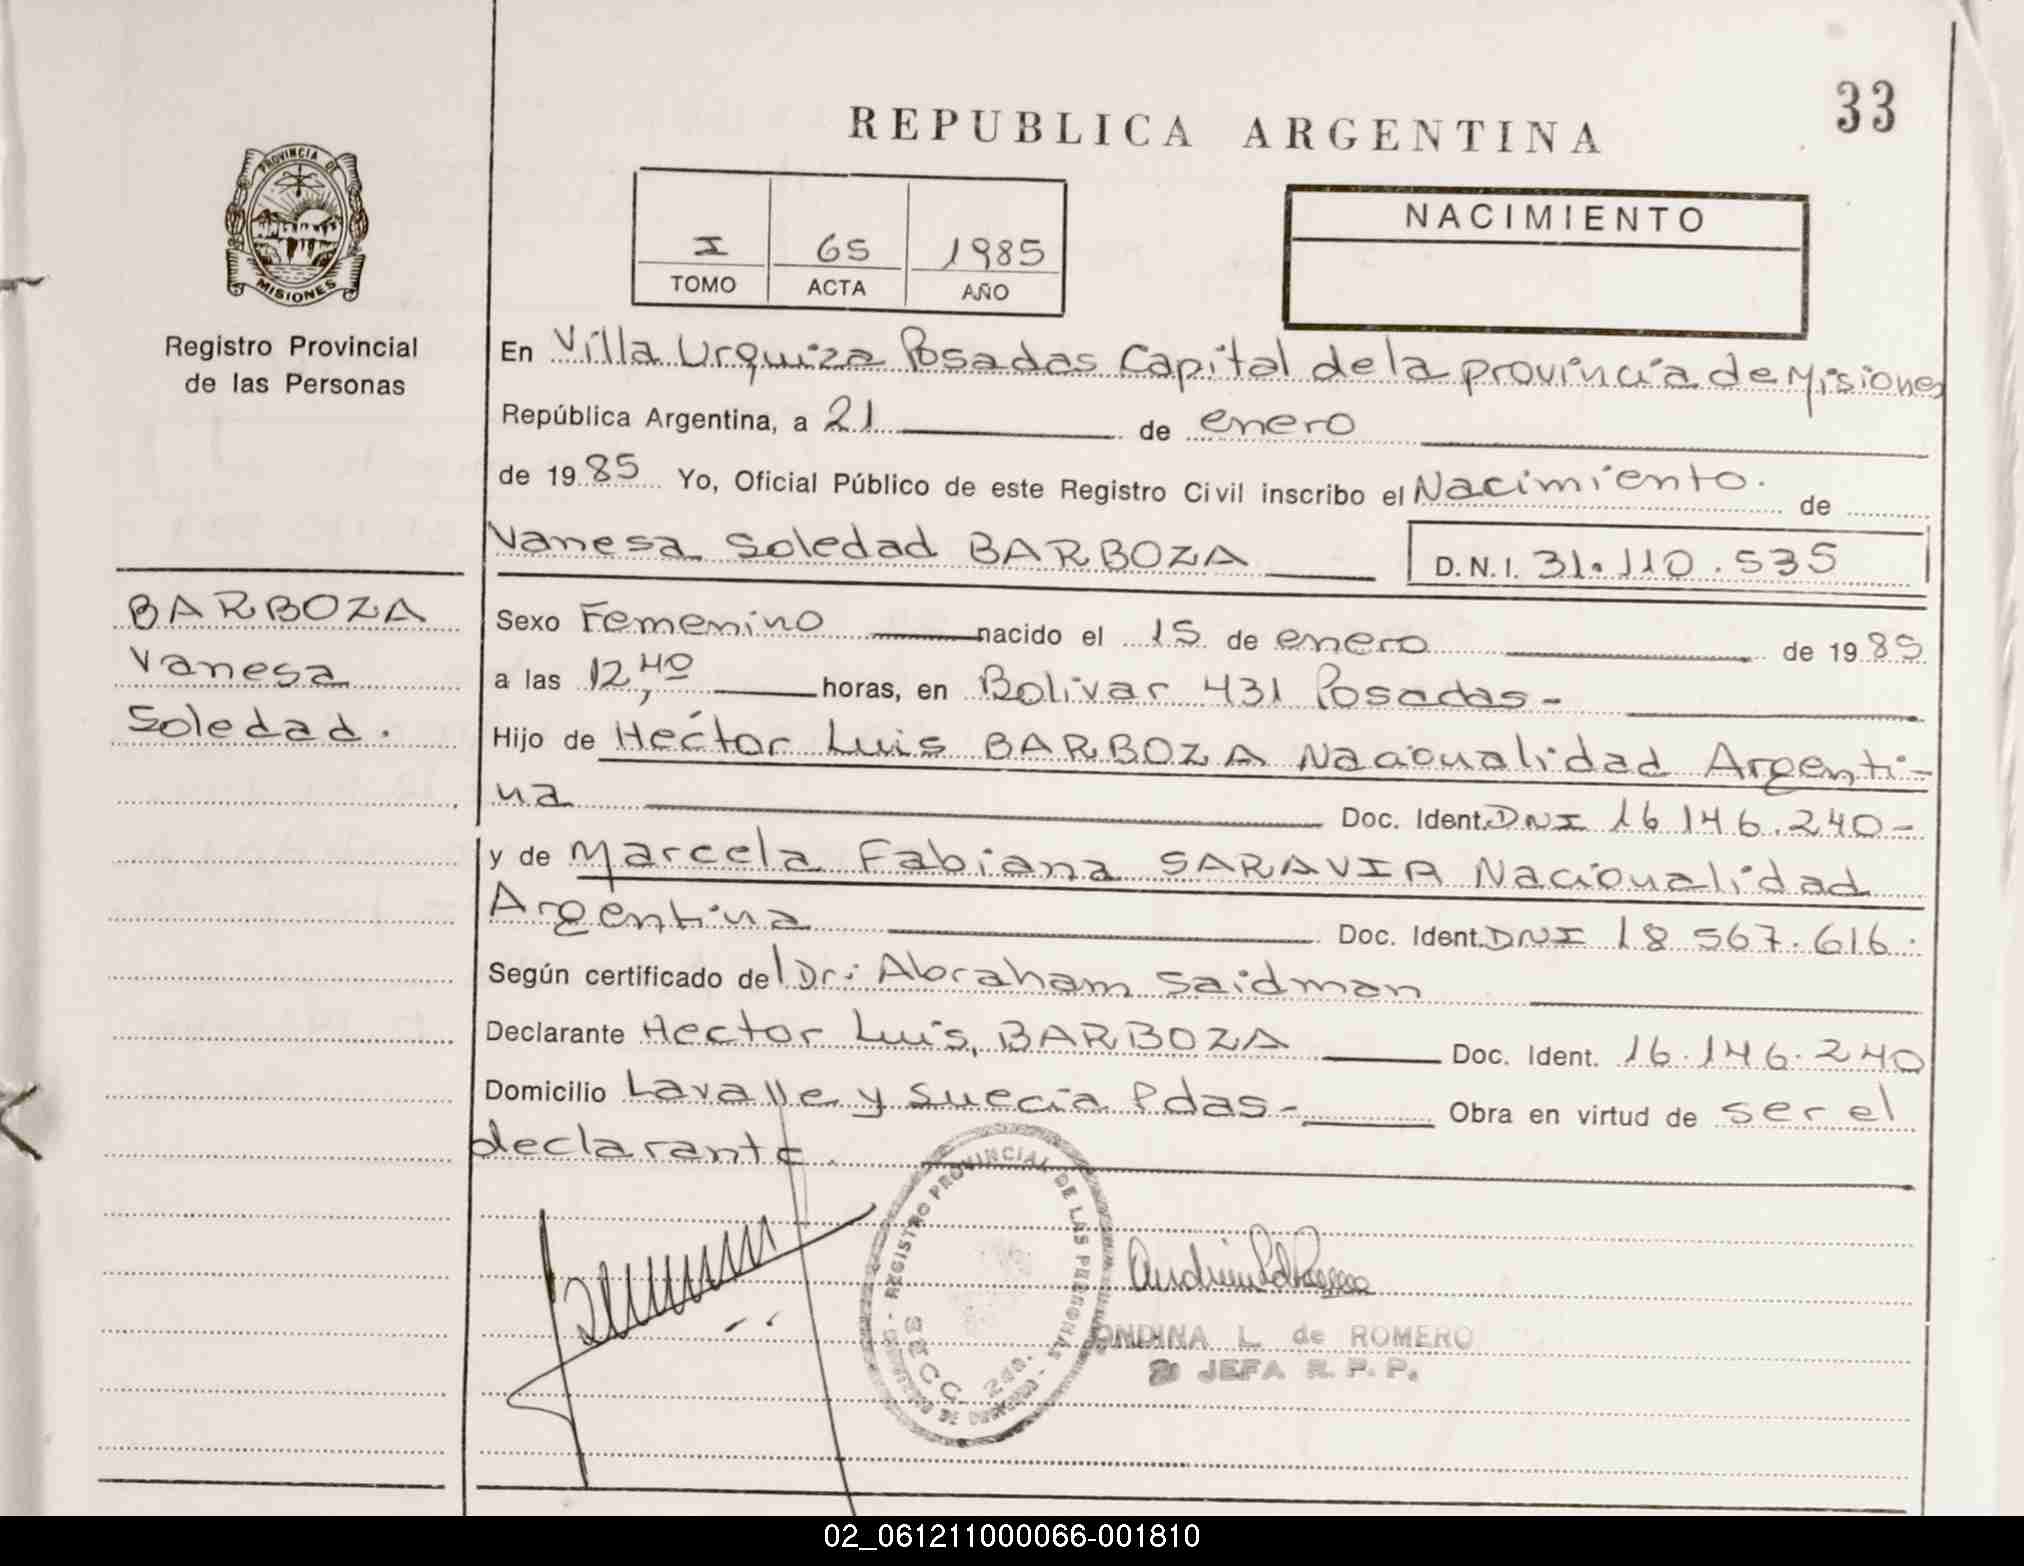 33
REPUBLICA ARGENTINA
PROVINCIA DE
MISIONES
Registro Provincial
de las Personas
I 65 1985
TOMO ACTA AÑO
NACIMIENTO
En Villa Urquiza Posadas Capital de la provincia de Misiones
República Argentina, a 21 de enero
de 1985 Yo, Oficial Público de este Registro Civil inscribo el Nacimiento. de
Vanesa Soledad BARBOZA D.N.I. 31.110.535
BARBOZA
Vanesa
Soledad.
Sexo Femenino nacido el 15 de enero de 1985
a las 12,40 horas, en Bolivar 431 Posadas-
Hijo de Héctor Luis BARBOZA Nacionalidad Argenti-
na Doc. Ident. DNI 16 146.240-
y de Marcela Fabiana SARAVIA Nacionalidad
Argentina Doc. Ident. DNI 18 567.616.
Según certificado del Dr: Abraham Saidman
Declarante Hector Luis, BARBOZA Doc. Ident. 16.146.240
Domicilio Lavalle y Suecia Pdas- Obra en virtud de ser el
declarante.
REGISTRO PROVINCIAL DE LAS PERSONAS
SECC.
ONDINA L. de ROMERO
JEFA R. P. P.
02_061211000066-001810